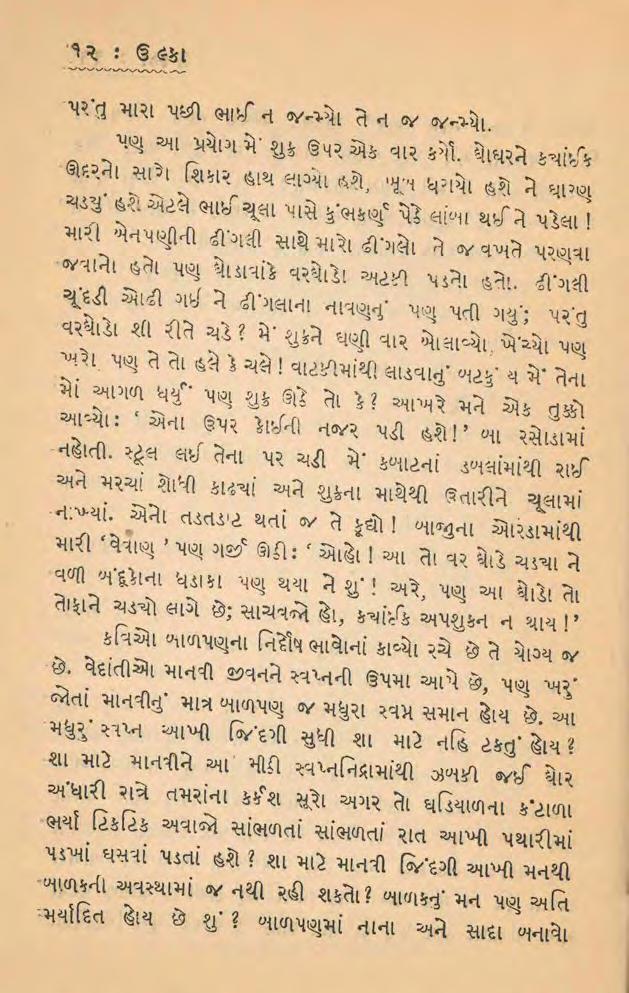 ૧૨ : ઉલ્કા
પરંતુ મારા પછી ભાઈ ન જન્મ્યો તે ન જ જન્મ્યો.
પણ આ પ્રયોગ મેં શુક્ર ઉપર એક વાર કર્યો. ઘોઘરને કયાંઈક
ઊંદરનો સારો શિકાર હાથ લાગ્યો હશે, ખૂબ ધરાયો હશે ને ઘારણ
ચડયું હશે એટલે ભાઈ ચૂલા પાસે કુંભકર્ણ પેઠે લાંબા થઈ ને પડેલા !
મારી બેનપણીની ઢીંગલી સાથે મારો ઢીંગલો તે જ વખતે પરણવા
જવાનો હતો પણ ઘોડાવાંકે વરઘોડો અટકી પડતો હતો. ઢીંગલી
ચૂંદડી ઓઢી ગઈ ને ઢીંગલાના નાવણનું પણ પતી ગયું; પરંતુ
વરઘોડો શી રીતે ચડે ? મેં શુક્રને ઘણી વાર બોલાવ્યો, ખેંચ્યો પણ
ખરો પણ તે તો હલે કે ચલે ! વાટકીમાંથી લાડવાનું બટકું ય મેં તેના
મોં આગળ ધર્યું પણ શુક્ર ઊઠે તો કે ? આખરે મને એક તુક્કો
આવ્યો : ‘ એના ઉપર કોઈની નજર પડી હશે !’ બા રસોડામાં
નહોતી. સ્ટૂલ લઈ તેના પર ચડી મેં કબાટનાં ડબલાંમાંથી રાઈ
અને મરચાં શોધી કાઢચાં અને શુક્રના માથેથી ઉતારીને ચૂલામાં
નાખ્યાં. એનો તડતડાટ થતાં જ તે કૂદ્યો ! બાજુના ઓરડામાંથી
મારી ‘વેવાણ ’ પણ ગર્જી ઊઠી : ‘ ઓહો ! આ તો વર ઘોડે ચડચા ને
વળી બંદૂકોના ધડાકા પણ થયા ને શું ! અરે, પણ આ ઘોડો તો
તોફાને ચડચો લાગે છે; સાચવજો હો, કયાંઈક અપશુકન ન થાય !’
કવિઓ બાળપણના નિર્દોષ ભાવોનાં કાવ્યો રચે છે તે યોગ્ય જ
છે. વેદાંતીઓ માનવી જીવનને સ્વપ્નની ઉપમા આપે છે, પણ ખરું
જોતાં માનવીનું માત્ર બાળપણ જ મધુરા સ્વપ્ન સમાન હોય છે. આ
મધુરું સ્વપ્ન આખી જિંદગી સુધી શા માટે નહિ ટકતું હોય ?
શા માટે માનવીને આ મીઠી સ્વપ્નનિદ્રામાંથી ઝબકી જઈ ઘોર
અંધારી રાત્રે તમરાંના કર્કશ સૂરો અગર તો ઘડિયાળના કંટાળા
ભર્યા ટિકટિક અવાજો સાંભળતાં સાંભળતાં રાત આખી પથારીમાં
પડખાં ઘસવાં પડતાં હશે ? શા માટે માનવી જિંદગી આખી મનથી
બાળકની અવસ્થામાં જ નથી રહી શકતો ? બાળકનું મન પણ અતિ
મર્યાદિત હોય છે શું ? બાળપણમાં નાના અને સાદા બનાવો